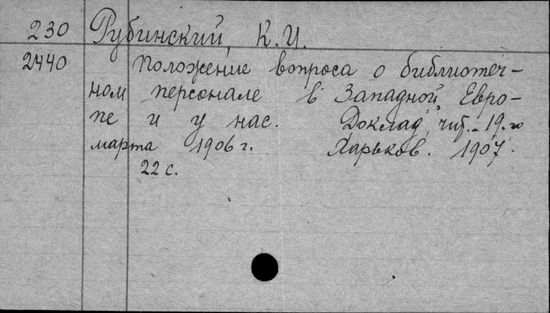 230 Рубинский, К. И.
2440 Положение вопроса о библиотеч-
ном персонале в Западной Евро-
пе и у нас. Доклад, чит. 19-го
марта 1906 г. Харьков. 1907.
22 с.